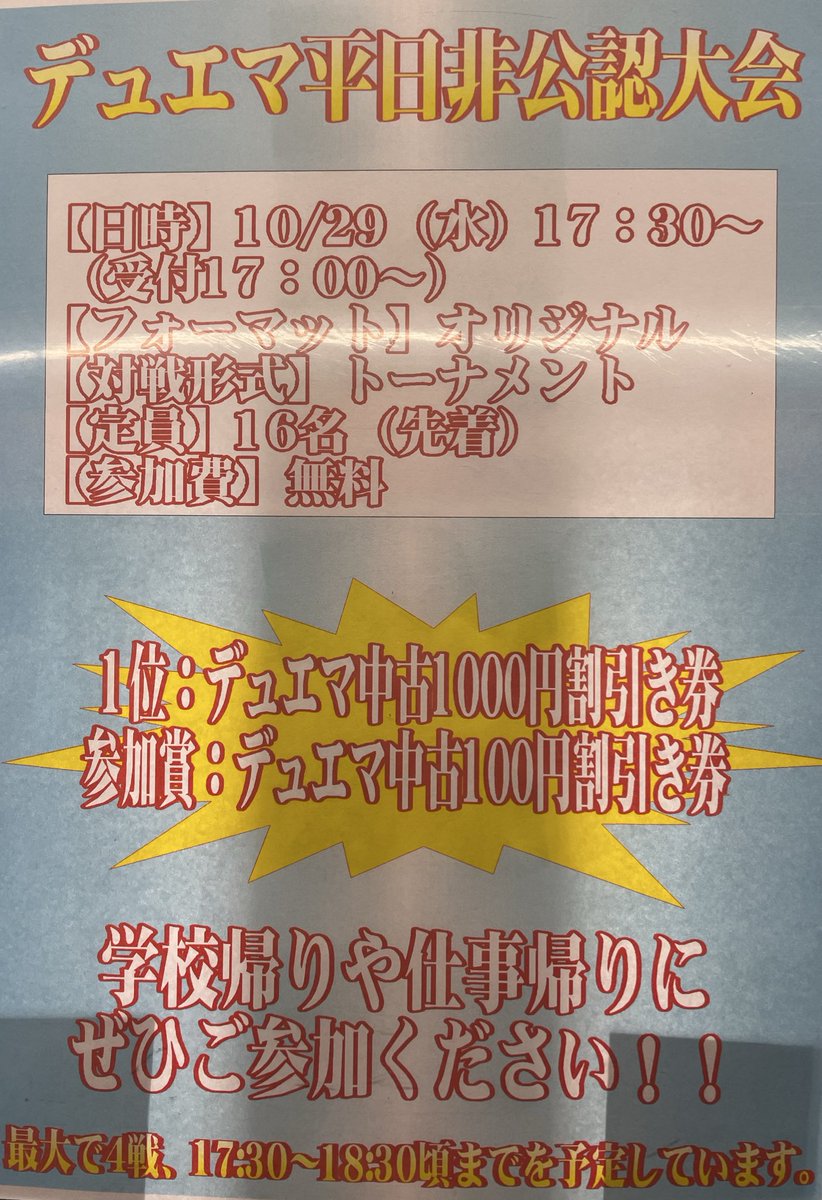 デュエマ平日非公認大会
【日時】10/29（水）17：30～
（受付17：00～）
【フォーマット】オリジナル
【対戦形式】トーナメント
【定員】16名（先着）
【参加費】無料
1位：デュエマ中古1000円割引き券
参加賞：デュエマ中古100円割引き券
学校帰りや仕事帰りに
ぜひご参加ください！！
最大で4戦、17:30～18:30頃までを予定しています。